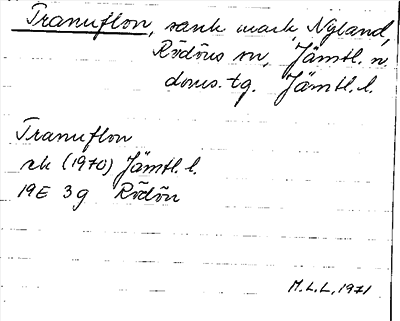 Tranuflon, sank mark, Nyland,
Rödöns sn, Jämtl. n.
doms. tg. Jämtl. l.
Tranuflon
ek (1970) Jämtl. l.
19E 3g Rödön
M.L.L, 1971